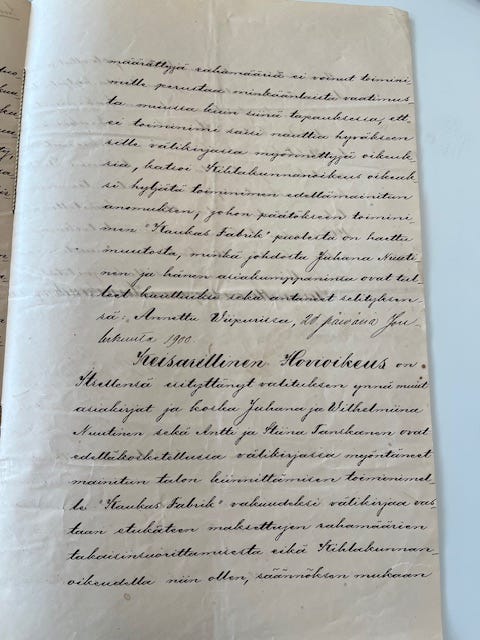 määrättyjä rahamääriä ei voinut toimini
mille perustaa minkäänlaista vaatimus
ta muussa kuin siinä tapauksessa, ett-
ei toiminimi saisi nauttia hyväksen
sille välikirjassa myönnettyjä oikeuk
sia, katsoi Kihlakunnanoikeus oikeuk
si hyljätä toiminimen edellämainitun
anomuksen, johon päätökseen toimini
men "Kaukas Fabrik" puolesta on haettu
muutosta, minkä johdosta Juhana Nuuti
nen ja hänen asiakumppaninsa ovat tul
leet kuulluiksi sekä antaneet selityksen
sä: Annettu Viipurissa, 20 päivänä Jou
lukuuta 1900.
Keisarillinen Hovioikeus on
Itsellensä esityttänyt valituksen ynnä muut
asiakirjat ja koska Juhana ja Wilhelmiina
Nuutinen sekä Antti ja Stiina Tanskanen ovat
edelläkosketellussa välikirjassa myöntäneet
mainitun talon kiinnittämisen toiminimel-
le "Kaukas Fabrik" vakuudeksi välikirjaa vas
taan etukäteen maksettujen rahamäärien
takaisinsuorittamisesta eikä Kihlakunnan-
oikeudella niin ollen, säännöksen mukaan